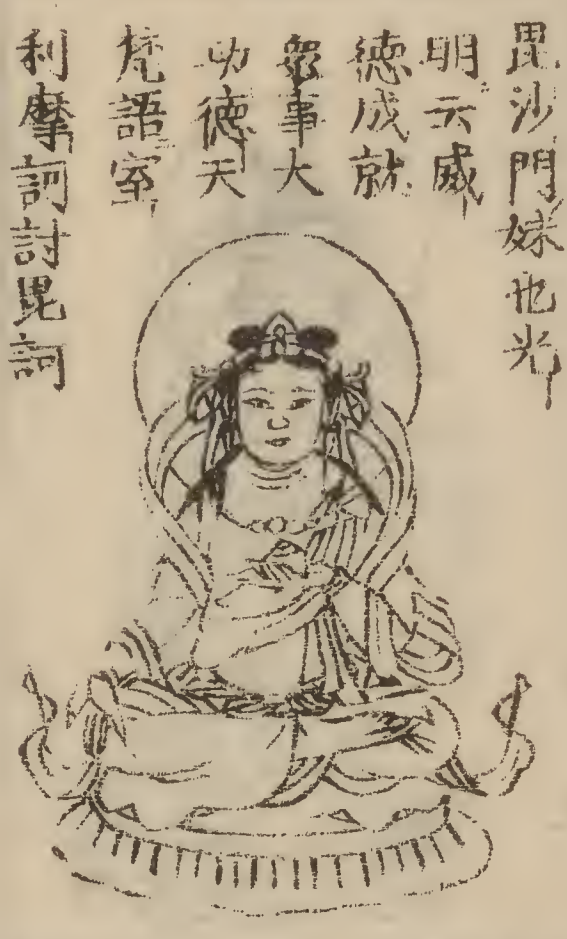 毘沙門妹也光
明云威
德成就
衆事大
功德天
梵語室
利摩訶討毘訶